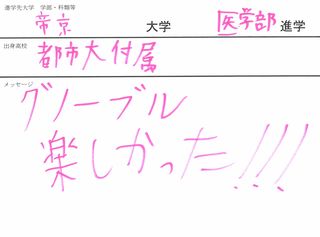 進学先大学 学部・科類等
帝京 大学 医学部 進学
出身高校
都市大付属
メッセージ
グノーブル
楽しかった!!!